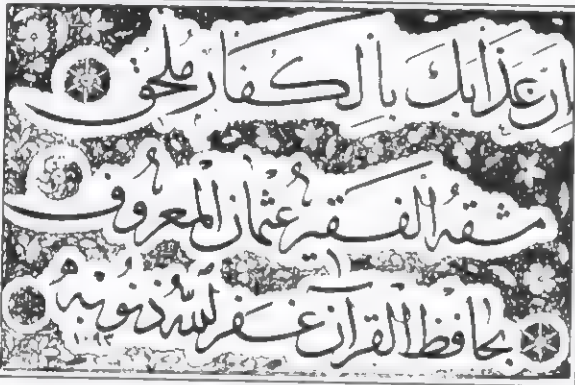 ان عذابك بالكفار ملحق
مشقه الفقير عثمان المعروف
بحافظ القرآن غفر الله ذنوبه